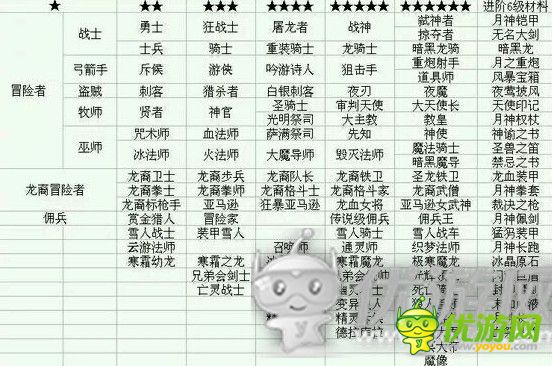 ★ ★★ ★★★ ★★★★ ★★★★★ ★★★★★★ 进阶6级材料
冒险者 战士 勇士 狂战士 屠龙者 战神 弑神者 月神铠甲
掠夺者 无名大剑
士兵 骑士 重装骑士 龙骑士 暗黑龙骑 暗黑龙
弓箭手 斥候 游侠 吟游诗人 狙击手 重炮射手 月之重炮
道具师 风暴宝箱
盗贼 刺客 猎杀者 白银刺客 夜刃 夜魔 夜莺披风
牧师 贤者 神官 圣骑士 审判天使 大天使长 天使印记
光明祭司 大主教 教皇 月神权杖
巫师 咒术师 血法师 萨满祭司 先知 神使 神谕之书
冰法师 火法师 大魔导师 毁灭法师 魔法骑士 圣兽之笛
暗黑魔导 禁忌之书
龙裔冒险者 龙裔卫士 龙裔步兵 龙裔队长 龙裔铁卫 圣龙铁卫 龙血装甲
龙裔拳士 龙裔拳师 龙裔格斗士 龙裔格斗家 龙裔武僧 月神拳套
龙裔标枪手 亚马逊 狂暴亚马逊 亚马逊女武神 裁决之枪
佣兵 赏金猎人 冒险家 传说级佣兵 佣兵王 月神佩剑
雪人战士 装甲雪人 雪人战车 猛犸装甲
云游法师 召唤师 通灵师 织梦法师 月神长跑
寒霜幼龙 寒霜之龙 寒霜魔龙 极寒魔龙 冰晶原石
兄弟会剑士
亡灵战士
变异
精灵
德拉库拉
魔像
优游网
www.yoyou.com